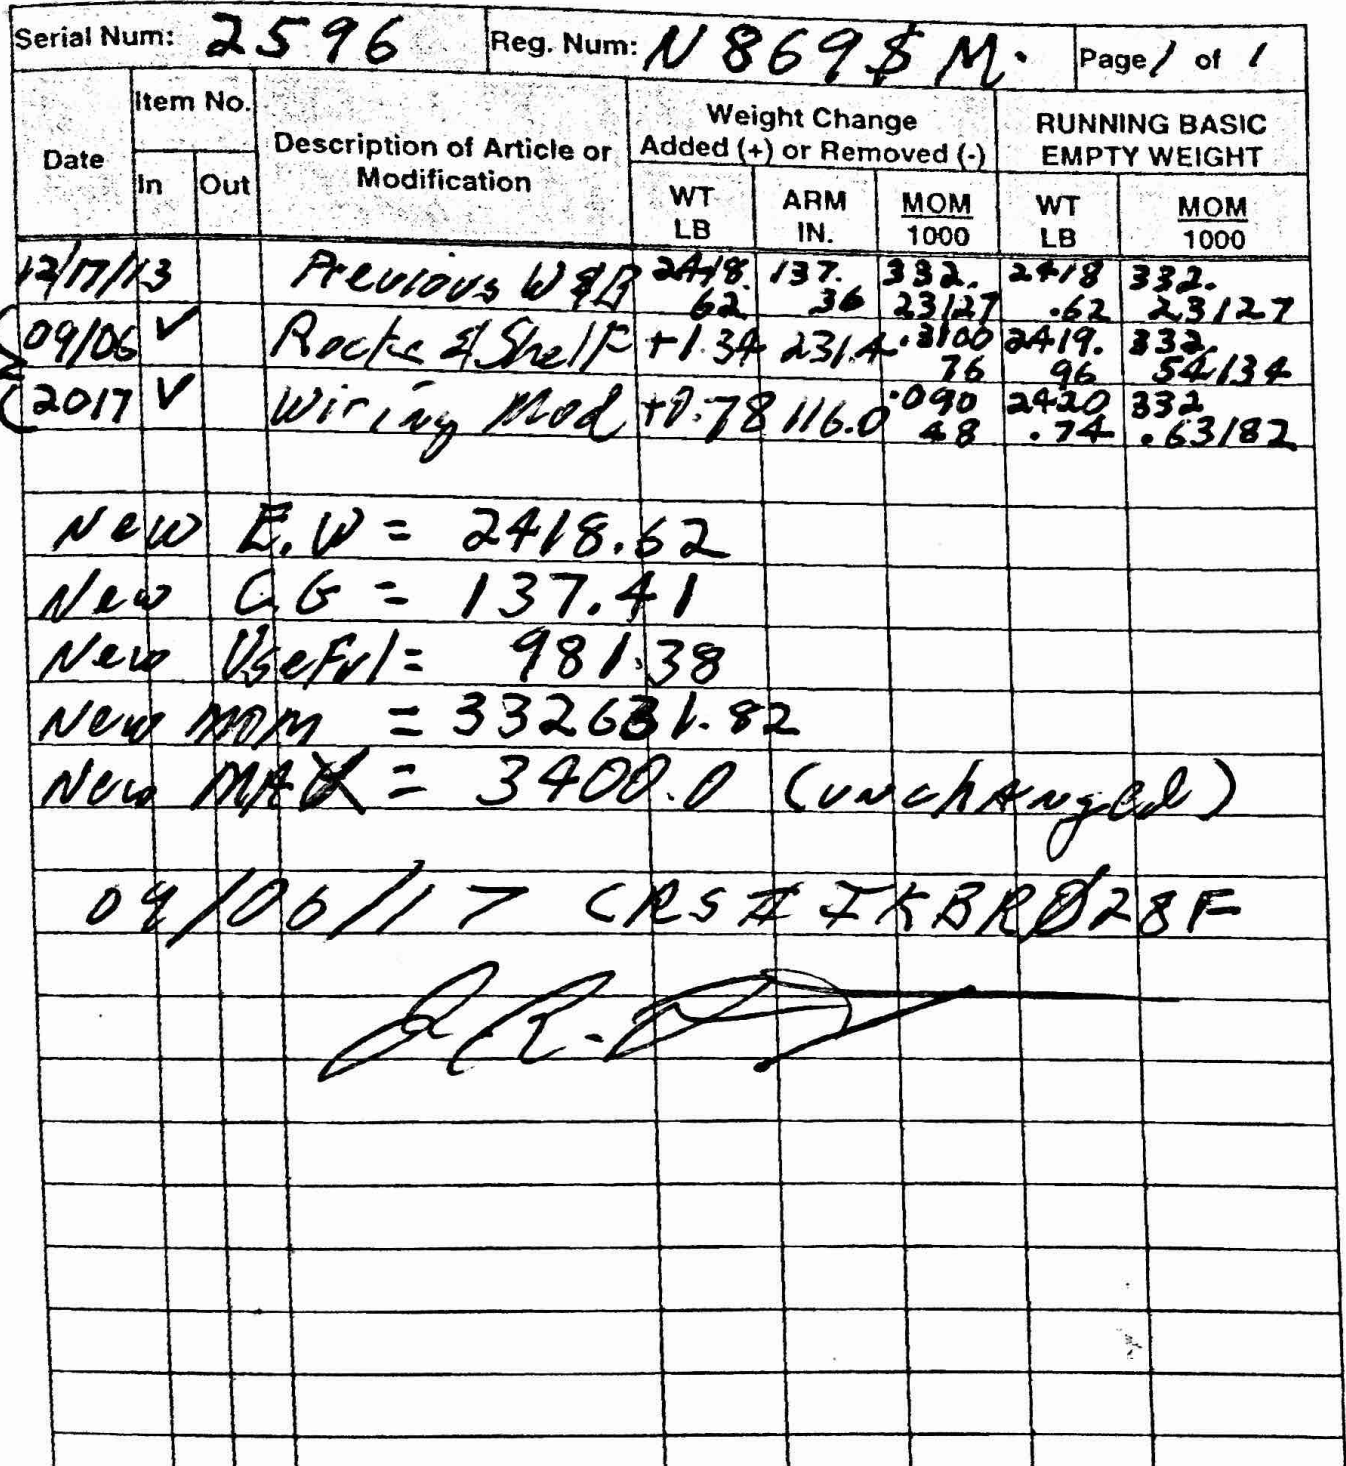 Serial Num: 2596 Reg. Num: N869$M. Page 1 of 1
Date Item No. In Out Description of Article or Modification Weight Change Added (+) or Removed (-) WT LB ARM IN. MOM 1000 RUNNING BASIC EMPTY WEIGHT WT LB MOM 1000
12/17/13 Previous W&B 2418.62 137.36 332.23127 2418.62 332.23127
09/06 ✓ & Shelf +1.34 231.4 .310076 2419.96 332.54134
2017 ✓ Wiring Mod +0.78 116.0 .09048 2420.74 332.63182
New E.W = 2418.62
New C.G = 137.41
New Useful = 981.38
New MOM = 332631.82
New MAX = 3400.0 (unchanged)
09/06/17 CRS# IKBRØ28F